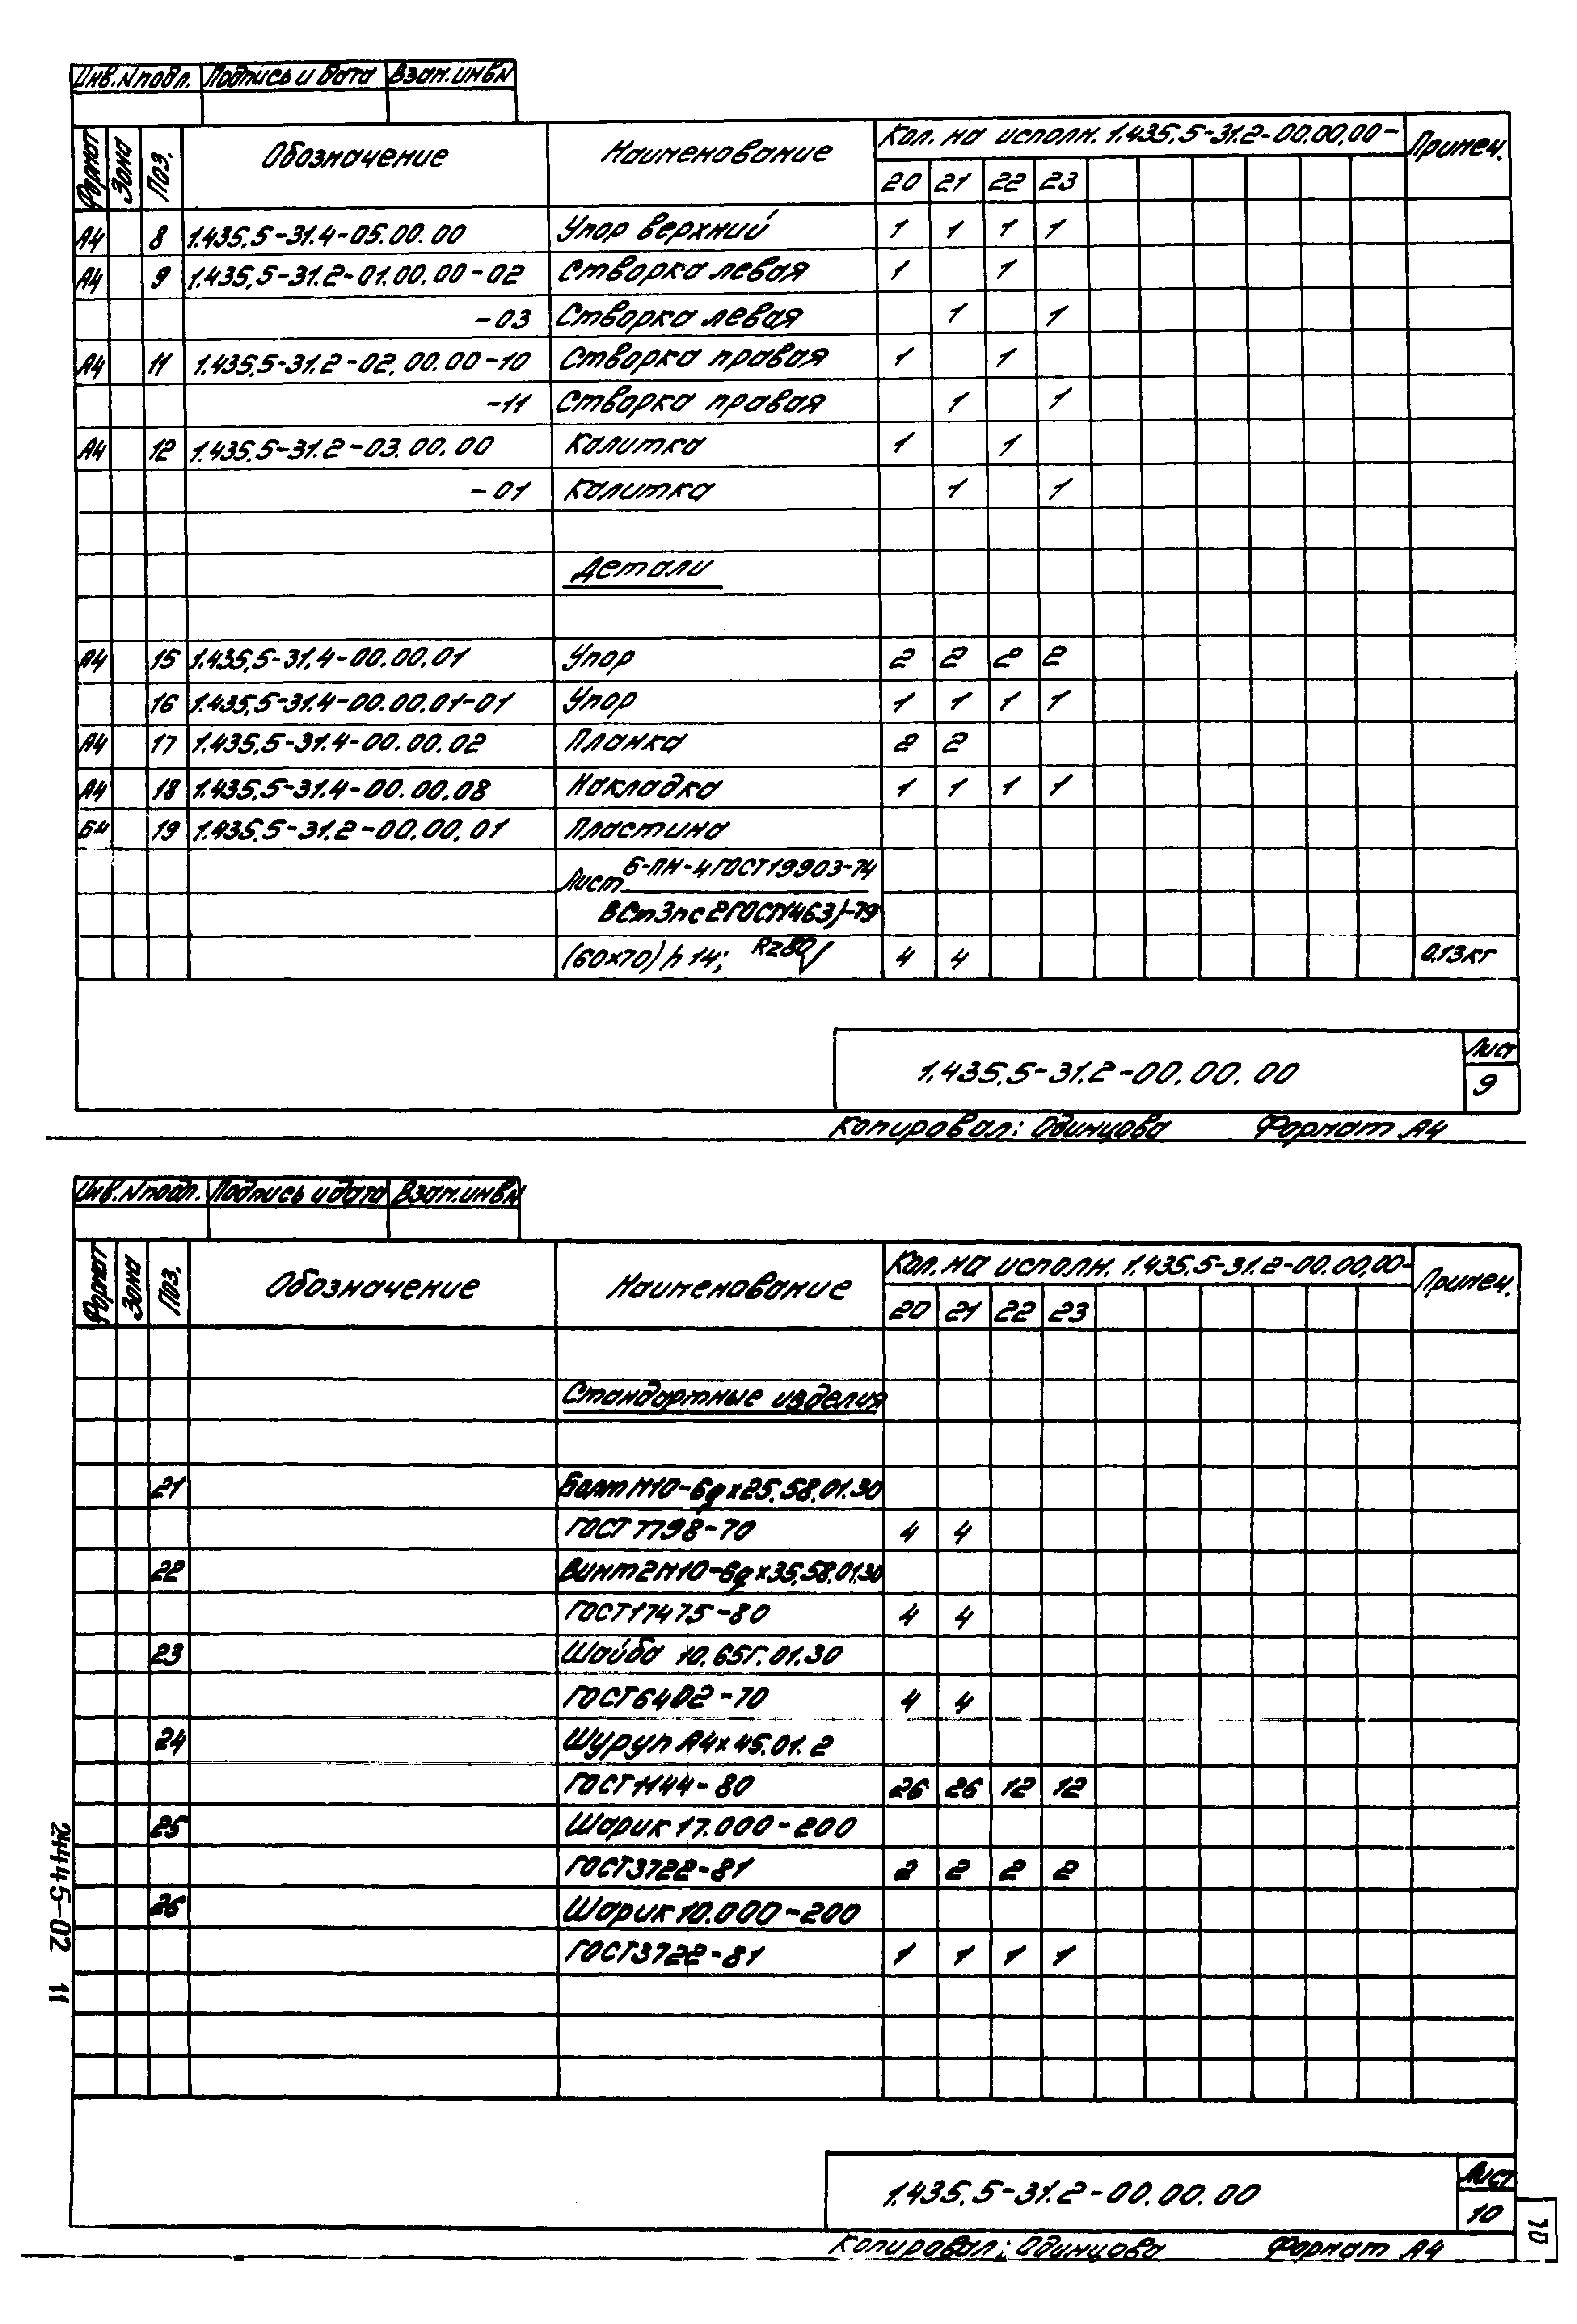 Инв.N подл. Подпись и дата Взам.инв N
Формат Зона Поз. Обозначение Наименование Кол. на исполн. 1.435.5-31.2-00.00.00- Примеч.
20 21 22 23
А4 8 1.435.5-31.4-05.00.00 Упор верхний 1 1 1 1
А4 9 1.435.5-31.2-01.00.00-02 Створка левая 1 1
-03 Створка левая 1 1
А4 11 1.435.5-31.2-02.00.00-10 Створка правая 1 1
-11 Створка правая 1 1
А4 12 1.435.5-31.2-03.00.00 Калитка 1 1
-01 Калитка 1 1
Детали
А4 15 1.435.5-31.4-00.00.01 Упор 2 2 2 2
16 1.435.5-31.4-00.00.01-01 Упор 1 1 1 1
А4 17 1.435.5-31.4-00.00.02 Планка 2 2
А4 18 1.435.5-31.4-00.00.08 Накладка 1 1 1 1
Б4 19 1.435.5-31.2-00.00.01 Пластина
Лист Б-ПН-4 ГОСТ 19903-74
ВСт3пс2 ГОСТ 14637-79
(60×70) h 14; Rz80 4 4 0.13кг
1.435.5-31.2-00.00.00 Лист
9
Копировал: Одинцова Формат А4
Инв.N подл. Подпись и дата Взам.инв N
Формат Зона Поз. Обозначение Наименование Кол. на исполн. 1.435.5-31.2-00.00.00- Примеч.
20 21 22 23
Стандартные изделия
21 Болт М10-6g×25.58.01.30
ГОСТ 7798-70 4 4
22 Винт 2М10-6g×35.58.01.30
ГОСТ 17475-80 4 4
23 Шайба 10.65Г.01.30
ГОСТ 6402-70 4 4
24 Шуруп А4×45.01.2
ГОСТ 1144-80 26 26 12 12
25 Шарик 17.000-200
ГОСТ 3722-81 2 2 2 2
26 Шарик 10.000-200
ГОСТ 3722-81 1 1 1 1
1.435.5-31.2-00.00.00 Лист
10
Копировал: Одинцова Формат А4
24445-02 11
10